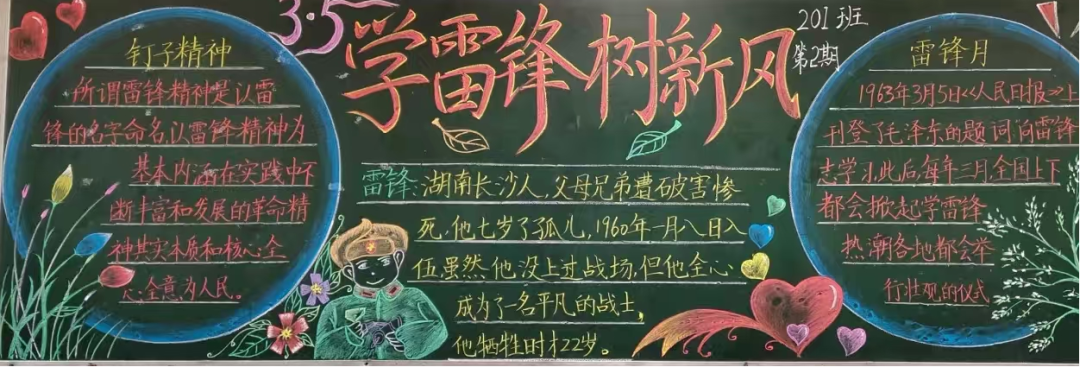 3·5
学雷锋树新风
201班
第2期
钉子精神
所谓雷锋精神是认雷
锋的名字命名认雷锋精神为
基本内涵在实践中不
断丰富和发展的革命精
神其实本质和核心全
心全意为人民。
雷锋:湖南长沙人,父母兄弟遭破害惨
死,他七岁了孤儿,1960年一月八日入
伍虽然他没上过战场,但他全心
成为了一名平凡的战士,
他牺牲时才22岁。
雷锋月
1963年3月5日《人民日报》上
刊登了毛泽东的题词向雷锋
志学习,此后,每年三月,全国上下
都会掀起学雷锋
热潮各地都会举
行壮观的仪式